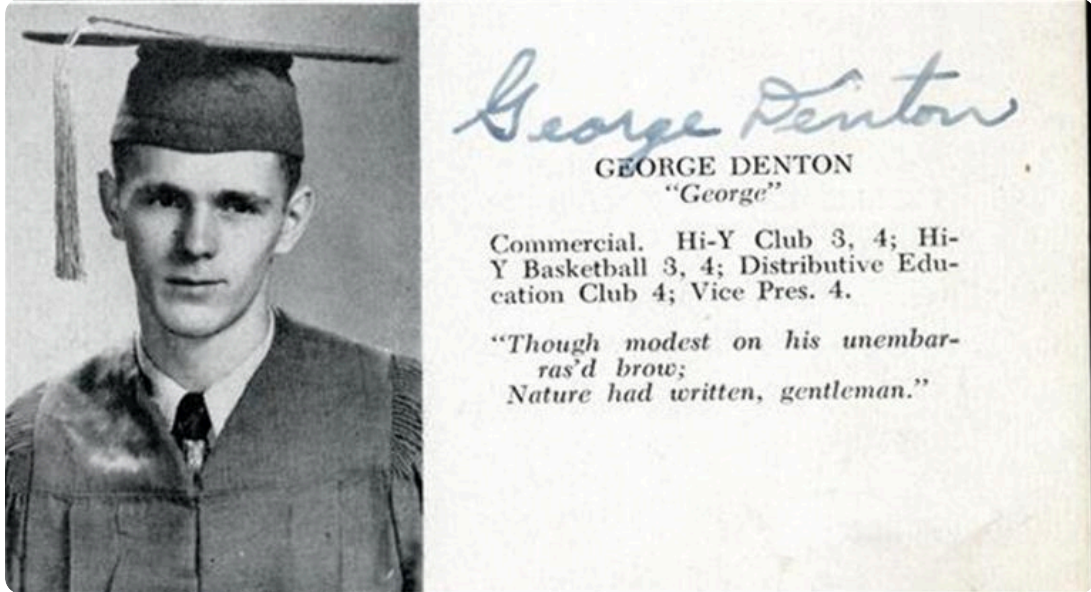 George Denton
GEORGE DENTON
“George”
Commercial. Hi-Y Club 3, 4; Hi-
Y Basketball 3, 4; Distributive Edu-
cation Club 4; Vice Pres. 4.
“Though modest on his unembar-
ras’d brow;
Nature had written, gentleman.”